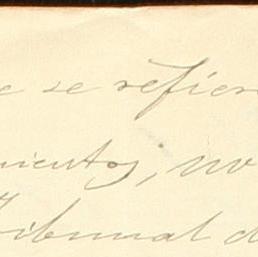 e se refier
mientos, no
Tribunal d